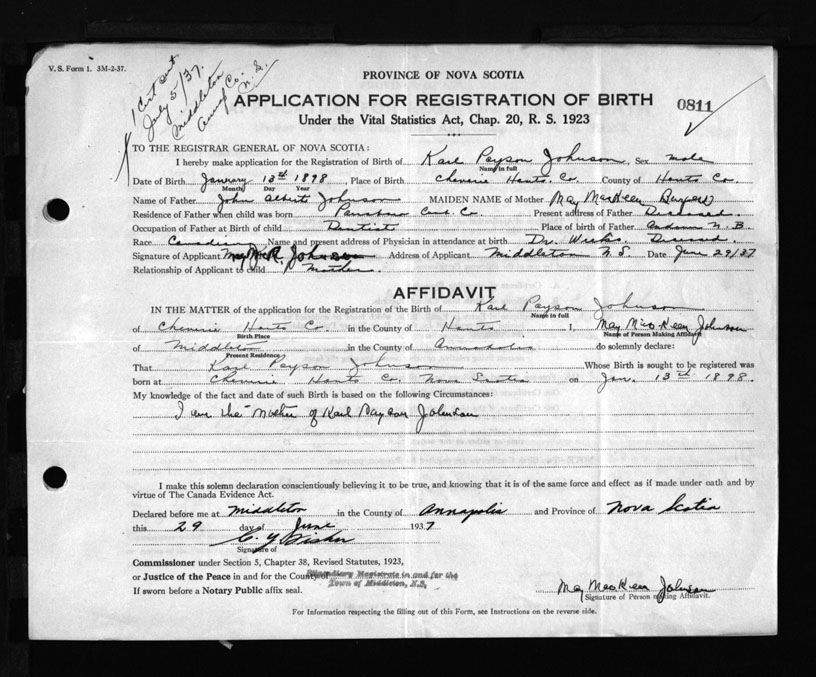 V. S. Form 1. 3M-2-37.
1 Cert sent
July 5/37.
Middleton
Annap Co.
N. S.
PROVINCE OF NOVA SCOTIA
APPLICATION FOR REGISTRATION OF BIRTH
0811
Under the Vital Statistics Act, Chap. 20, R. S. 1923
TO THE REGISTRAR GENERAL OF NOVA SCOTIA:
I hereby make application for the Registration of Birth of Karl Payson Johnson Sex male
Name in full
Date of Birth January 13th 1898 Place of Birth Cheverie Hants. Co. County of Hants Co.
Month Day Year
Name of Father John Alberto Johnson MAIDEN NAME of Mother May MacKeen
Residence of Father when child was born Cum. Co. Present address of Father Deceased.
Occupation of Father at Birth of child Dentist Place of birth of Father N. B.
Race Canadian Name and present address of Physician in attendance at birth Dr. Weeks. Deceased.
Signature of Applicant May McK Johnson Address of Applicant Middleton N. S. Date June 29/37
Relationship of Applicant to child Mother.
AFFIDAVIT
IN THE MATTER of the application for the Registration of the Birth of Karl Payson Johnson
Name in full
of Cheverie Hants Co. in the County of Hants I, May MacKeen Johnson
Birth Place Name of Person Making Affidavit
of Middleton in the County of Annapolis do solemnly declare:
Present Residence
That Karl Payson Johnson Whose Birth is sought to be registered was
born at Cheverie Hants Co. Nova Scotia on Jan. 13th 1898.
My knowledge of the fact and date of such Birth is based on the following Circumstances:
I am the Mother of Karl Payson Johnson
I make this solemn declaration conscientiously believing it to be true, and knowing that it is of the same force and effect as if made under oath and by
virtue of The Canada Evidence Act.
Declared before me at Middleton in the County of Annapolis and Province of Nova Scotia
this 29 day of June 1937
Signature of
Commissioner under Section 5, Chapter 38, Revised Statutes, 1923,
or Justice of the Peace in and for the County of Stipendiary Magistrate in and for the
Town of Middleton, N.S.
If sworn before a Notary Public affix seal.
May MacKeen Johnson
Signature of Person making Affidavit.
For Information respecting the filling out of this Form, see Instructions on the reverse side.